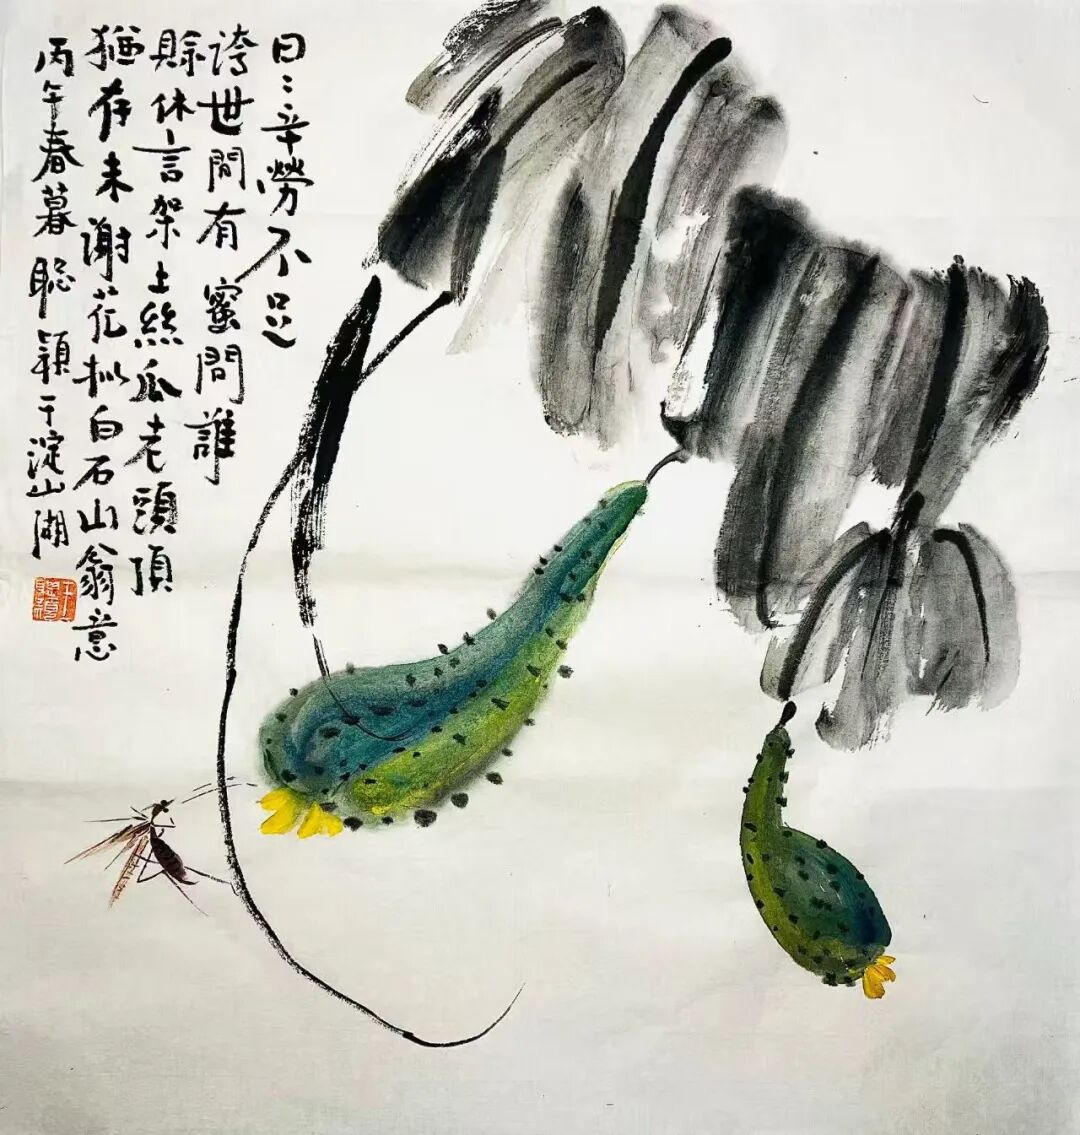 日〻辛勞不足
誇世間有蜜問誰
賒休言架上絲瓜老頭頂
猶存未謝花擬白石山翁意
丙午春暮聪穎于淀山湖